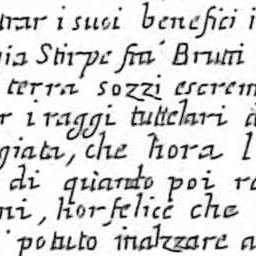 rar i suoi benefici i
ia Stirpe frà Bruti
terra sozzi escrem
r i raggi tuttelari d
giata, che hora l
di quando poi r
ni, hor felice che
potuto inalzare a